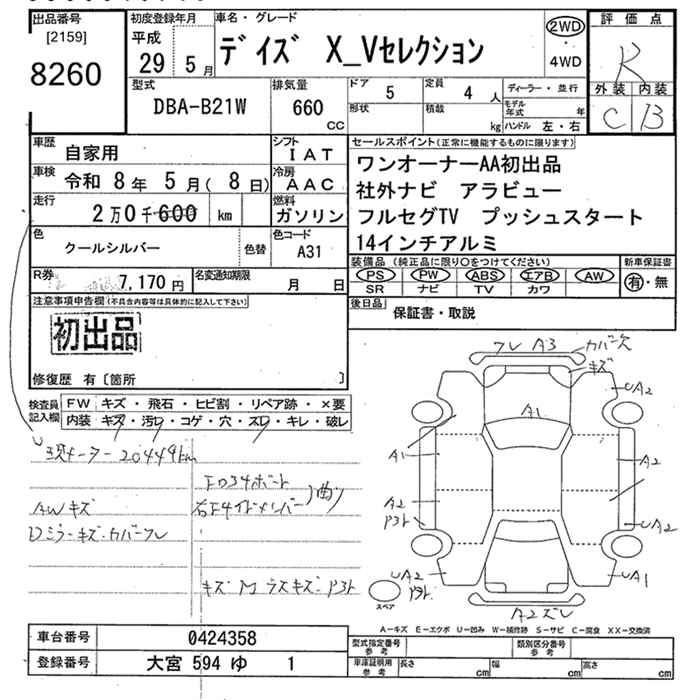 出品番号
[2159]
8260
初度登録年月
平成
29 5月
車名・グレード
デイズ X_Vセレクション
2WD
4WD
評価点
R
外装 内装
C B
型式
DBA-B21W
排気量
660
CC
ドア 5
形状
定員 4人
積載 kg
ディーラー・並行
モデル年式 年
ハンドル 左・右
車歴 自家用
シフト IAT
車検 令和 8年 5月( 8日)
冷房 AAC
走行 2万0千600 km
燃料 ガソリン
色 クールシルバー 色替
色コード A31
R券 7,170円
名変通知期限 月 日
セールスポイント(正常に機能するものに限ります)
ワンオーナーAA初出品
社外ナビ アラビュー
フルセグTV プッシュスタート
14インチアルミ
装備品(純正品に限り○をつけてください)
PS PW ABS エアB AW
SR ナビ TV カワ
新車保証書
有・無
後日品 保証書・取説
注意事項申告欄(不具合内容等は具体的に記入して下さい)
初出品
修復歴 有〔箇所 〕
検査員記入欄
FW キズ・飛石・ヒビ割・リペア跡・×要
内装 キズ・汚レ・コゲ・穴・スレ・キレ・破レ
現メーター 20449km
AWキズ
Dミラーキズ・カバーフレ
フレ A3
カバー欠
キズ
UA2
A1
A1
A2
A2
UA2
UA2
UA1
A2ズレ
スペア
A-キズ E-エクボ U-凹み W-補修跡 S-サビ C-腐食 XX-交換済
車台番号 0424358
登録番号 大宮 594 ゆ 1
型式指定番号 参考
類別区分番号 参考
車庫証明用 参考
長さ cm
幅 cm
高さ cm